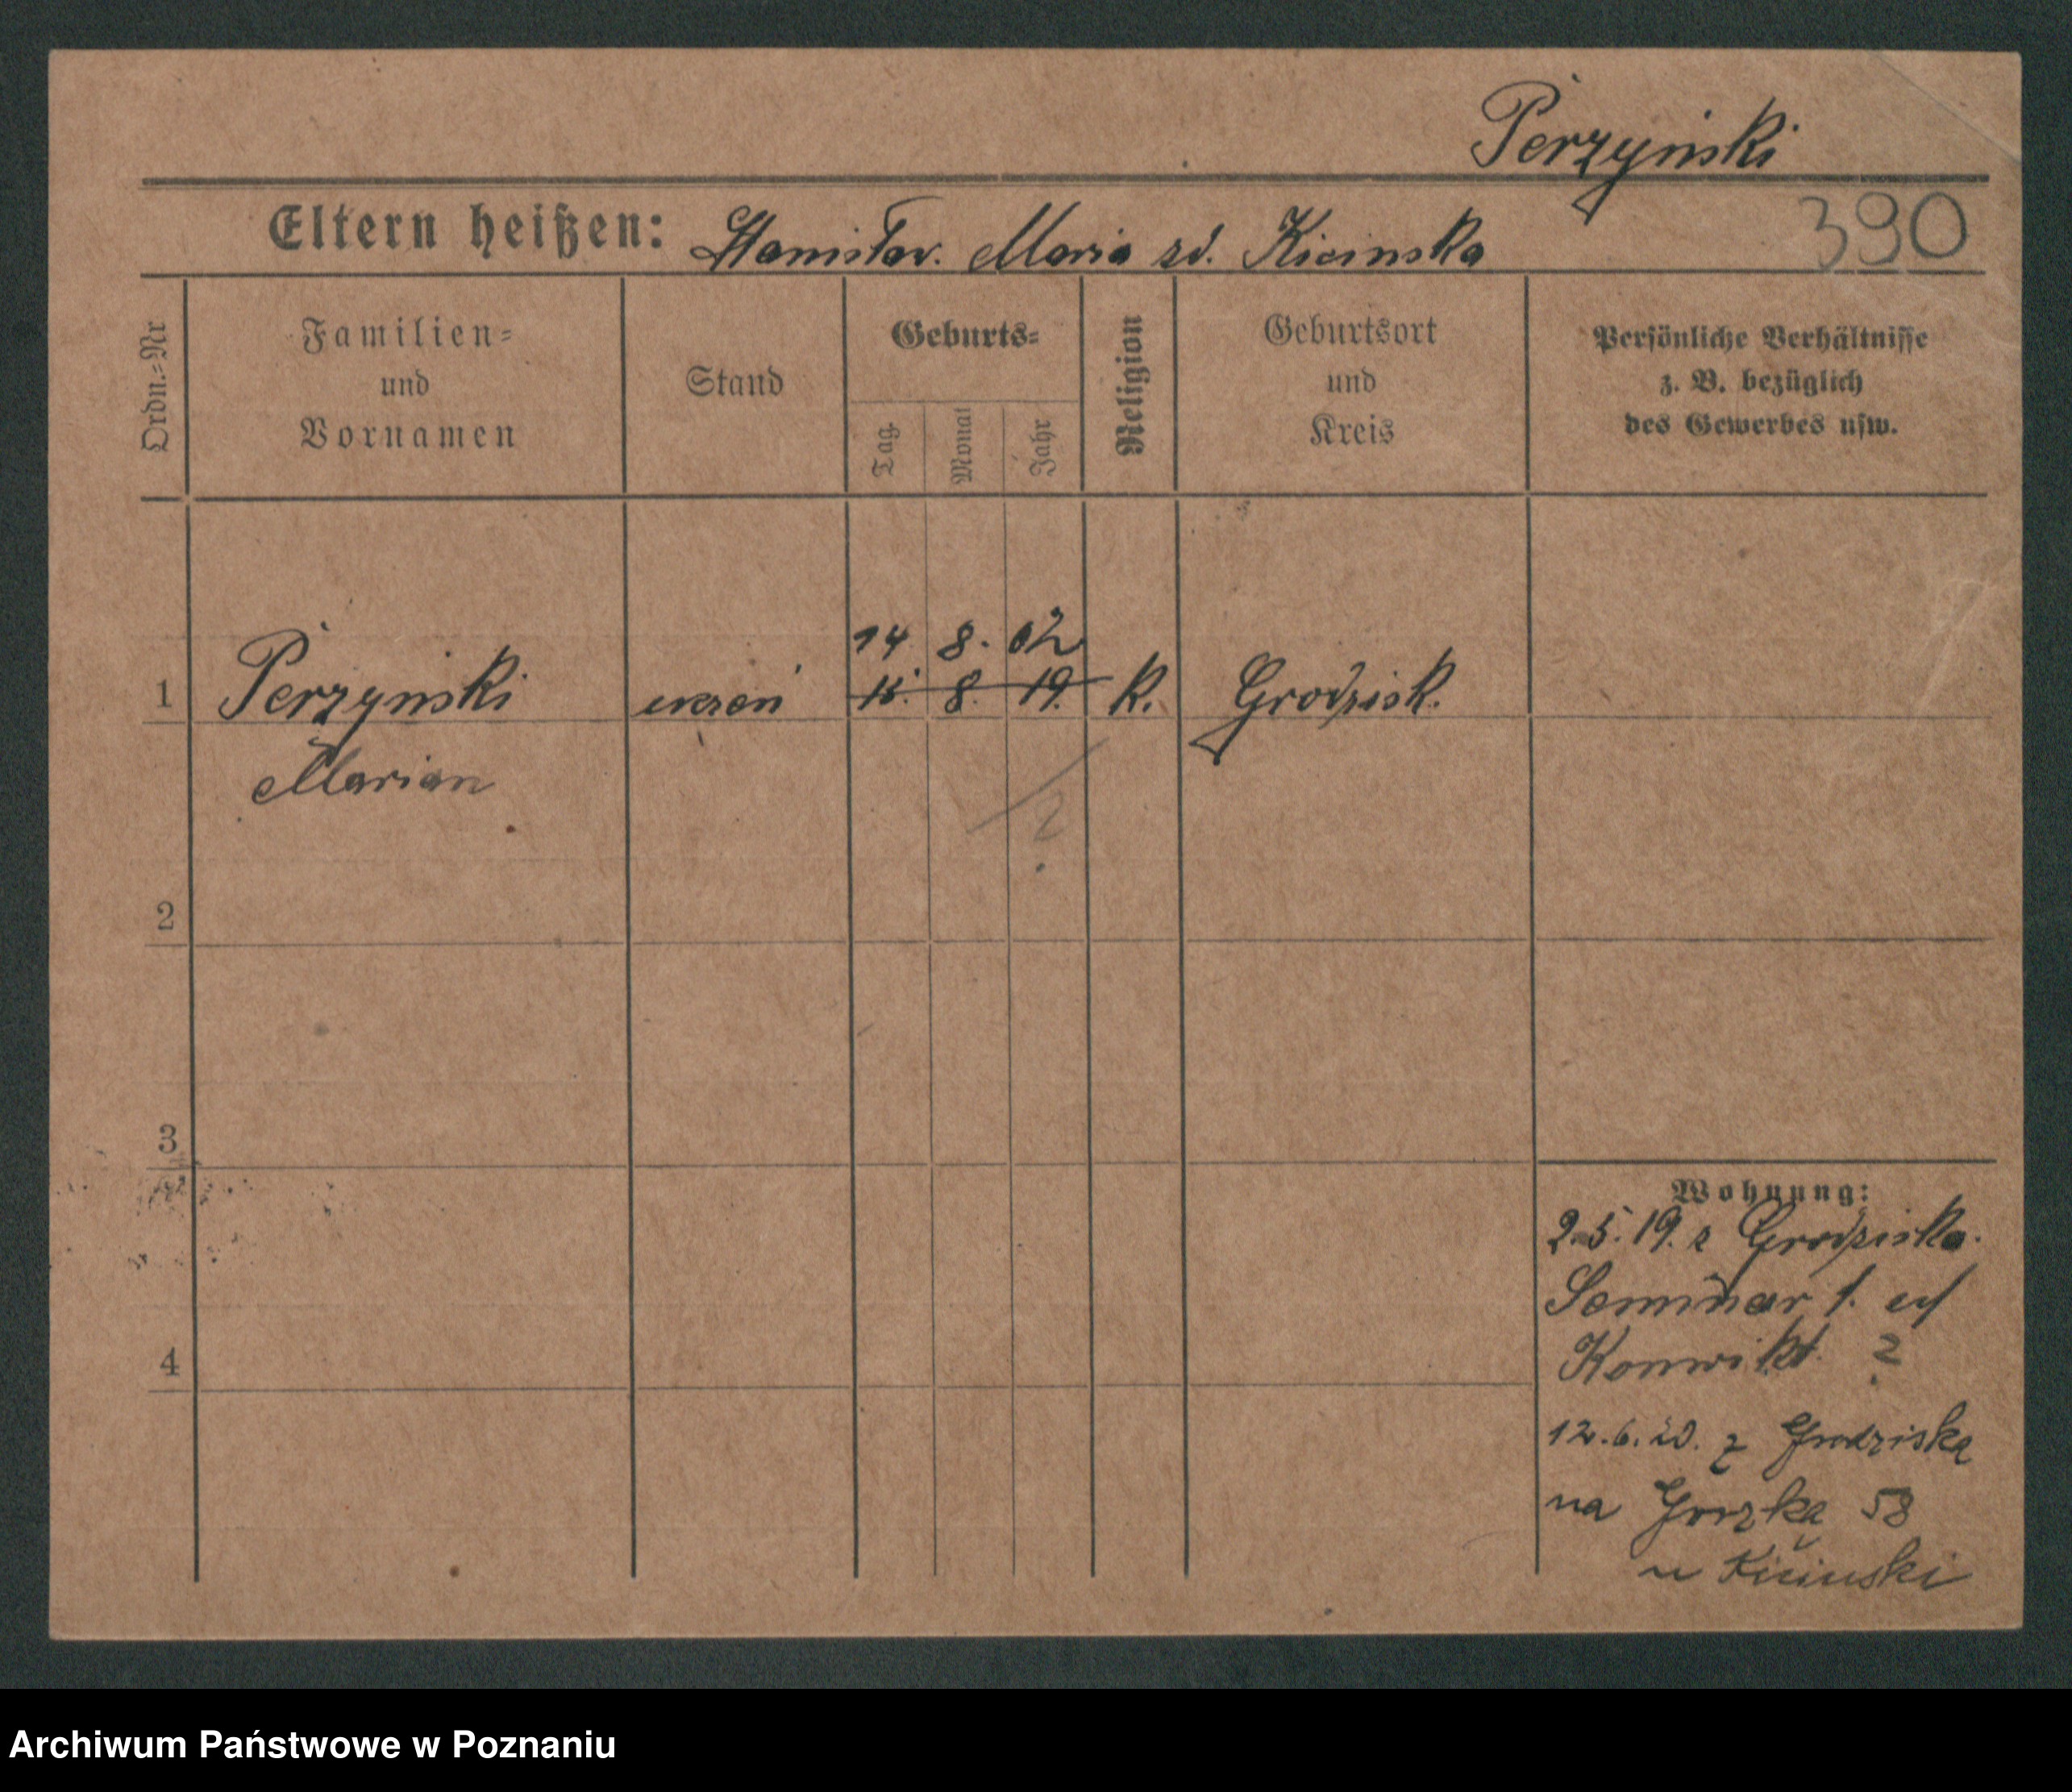 Perzyński
Eltern heißen: Stanisław. Maria zd. Kicinska
390
Ordn.=Nr
Familien=
und
Vornamen
Stand
Geburts=
Tag
Monat
Jahr
Religion
Geburtsort
und
Kreis
Persönliche Verhältnisse
z. B. bezüglich
des Gewerbes usw.
14 8. 02
1 Perzyński uczeń 15. 8. 19. K. Grodzisk.
Marian
?
2
3
4
Wohnung:
2.5.19. z Grodziska.
Seminar 1.
Konwikt. ?
12.6.20. z Grodziska
na Gorzka 58
u Kicinski
Archiwum Państwowe w Poznaniu